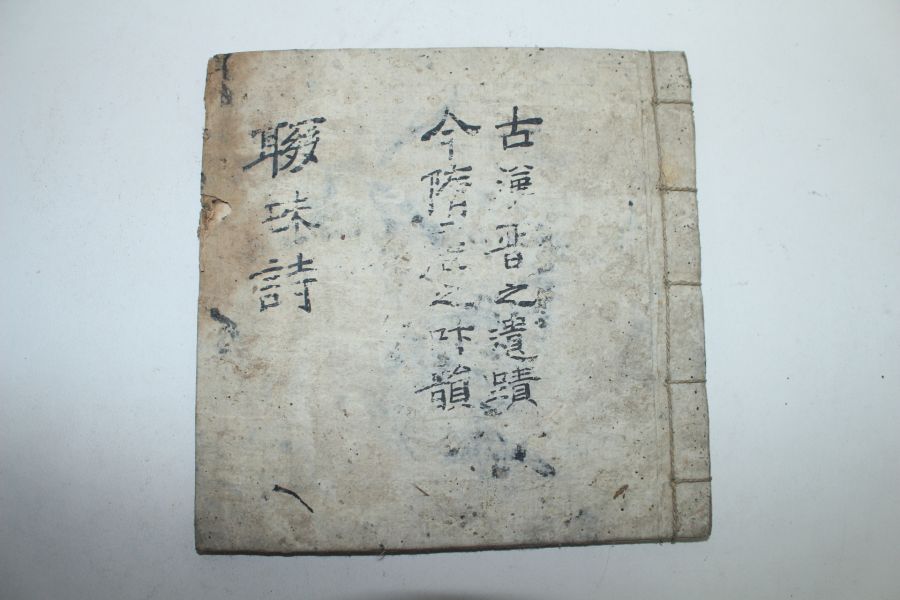 古漢晋之遺蹟
今隋唐之吟韻
聯珠詩